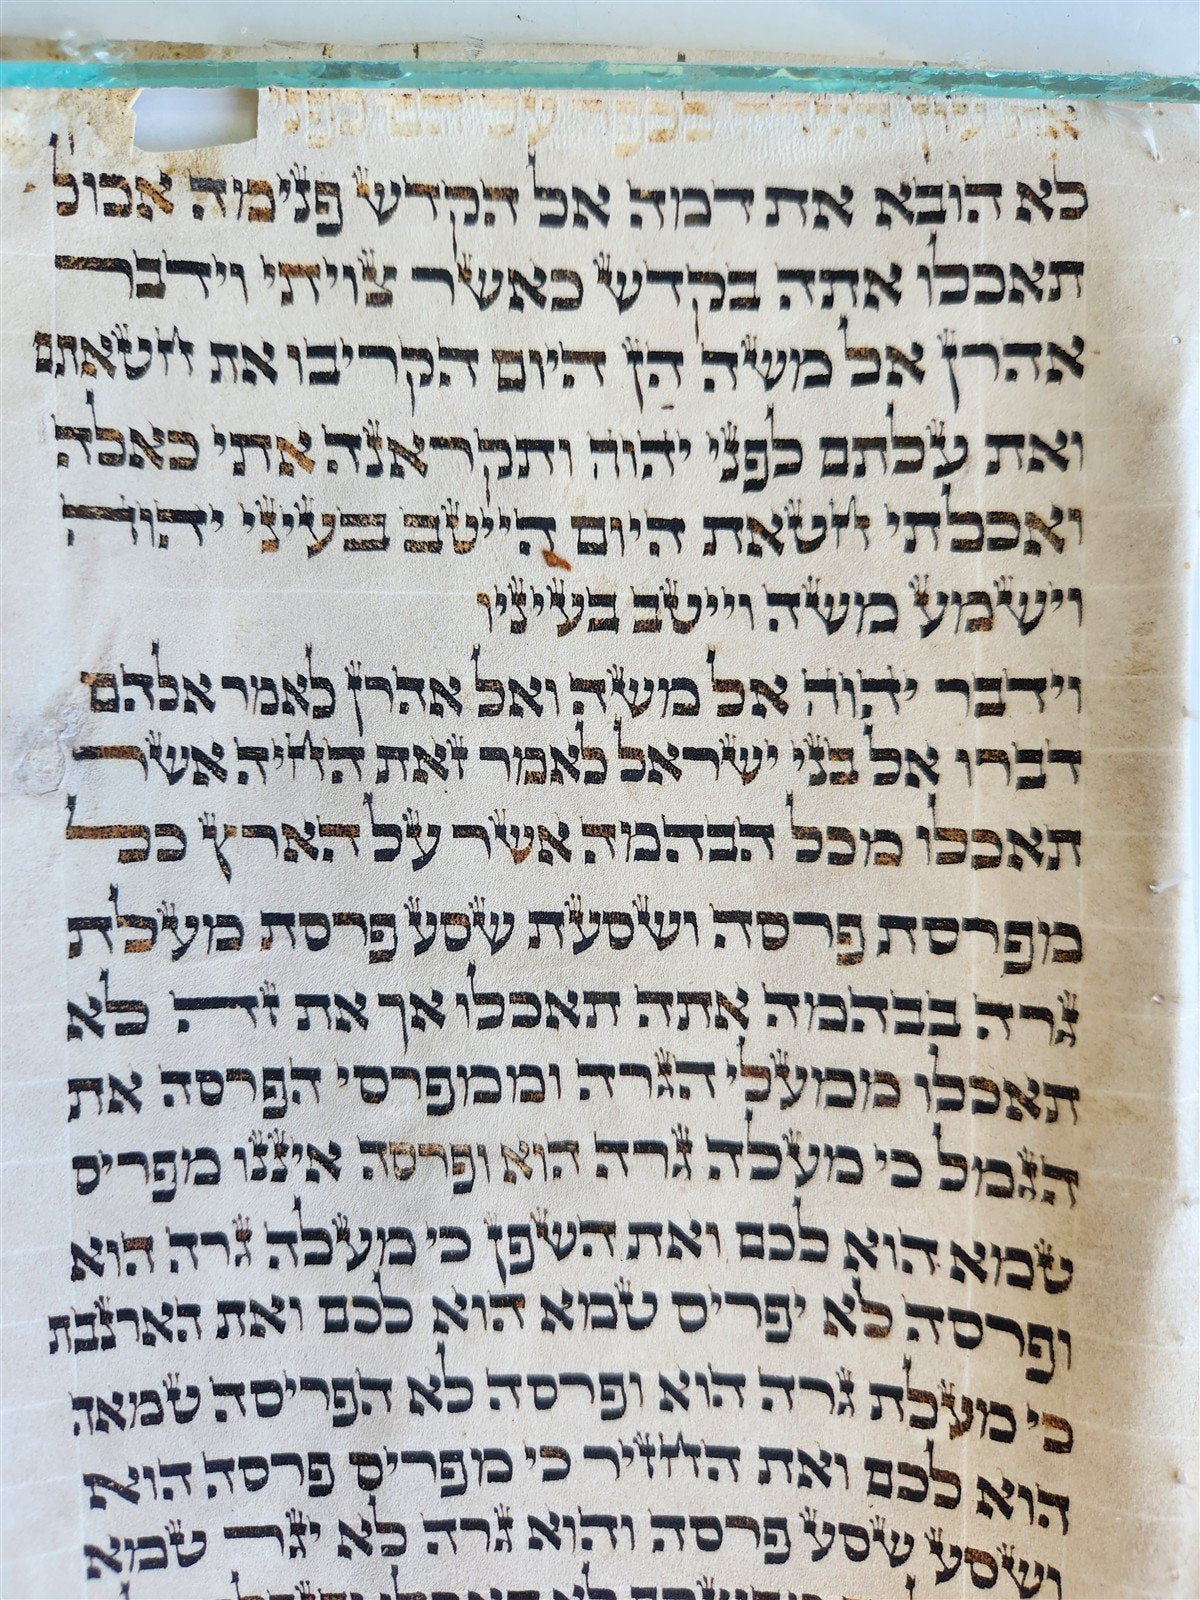 לא הובא את דמה אל הקדש פנימה אכול
תאכלו אתה בקדש כאשר צויתי וידבר
אהרן אל משה הן היום הקריבו את חטאתם
ואת עלתם לפני יהוה ותקראנה אתי כאלה
ואכלתי חטאת היום הייטב בעיני יהוה
וישמע משה וייטב בעיניו
וידבר יהוה אל משה ואל אהרן לאמר אלהם
דברו אל בני ישראל לאמר זאת החיה אשר
תאכלו מכל הבהמה אשר על הארץ כל
מפרסת פרסה ושסעת שסע פרסת מעלת
גרה בבהמה אתה תאכלו אך את זה לא
תאכלו ממעלי הגרה וממפרסי הפרסה את
הגמל כי מעלה גרה הוא ופרסה איננו מפריס
טמא הוא לכם ואת השפן כי מעלה גרה הוא
ופרסה לא יפריס טמא הוא לכם ואת הארנבת
כי מעלת גרה הוא ופרסה לא הפריסה טמאה
הוא לכם ואת החזיר כי מפריס פרסה הוא
ושסע שסע פרסה והוא גרה לא יגר טמא